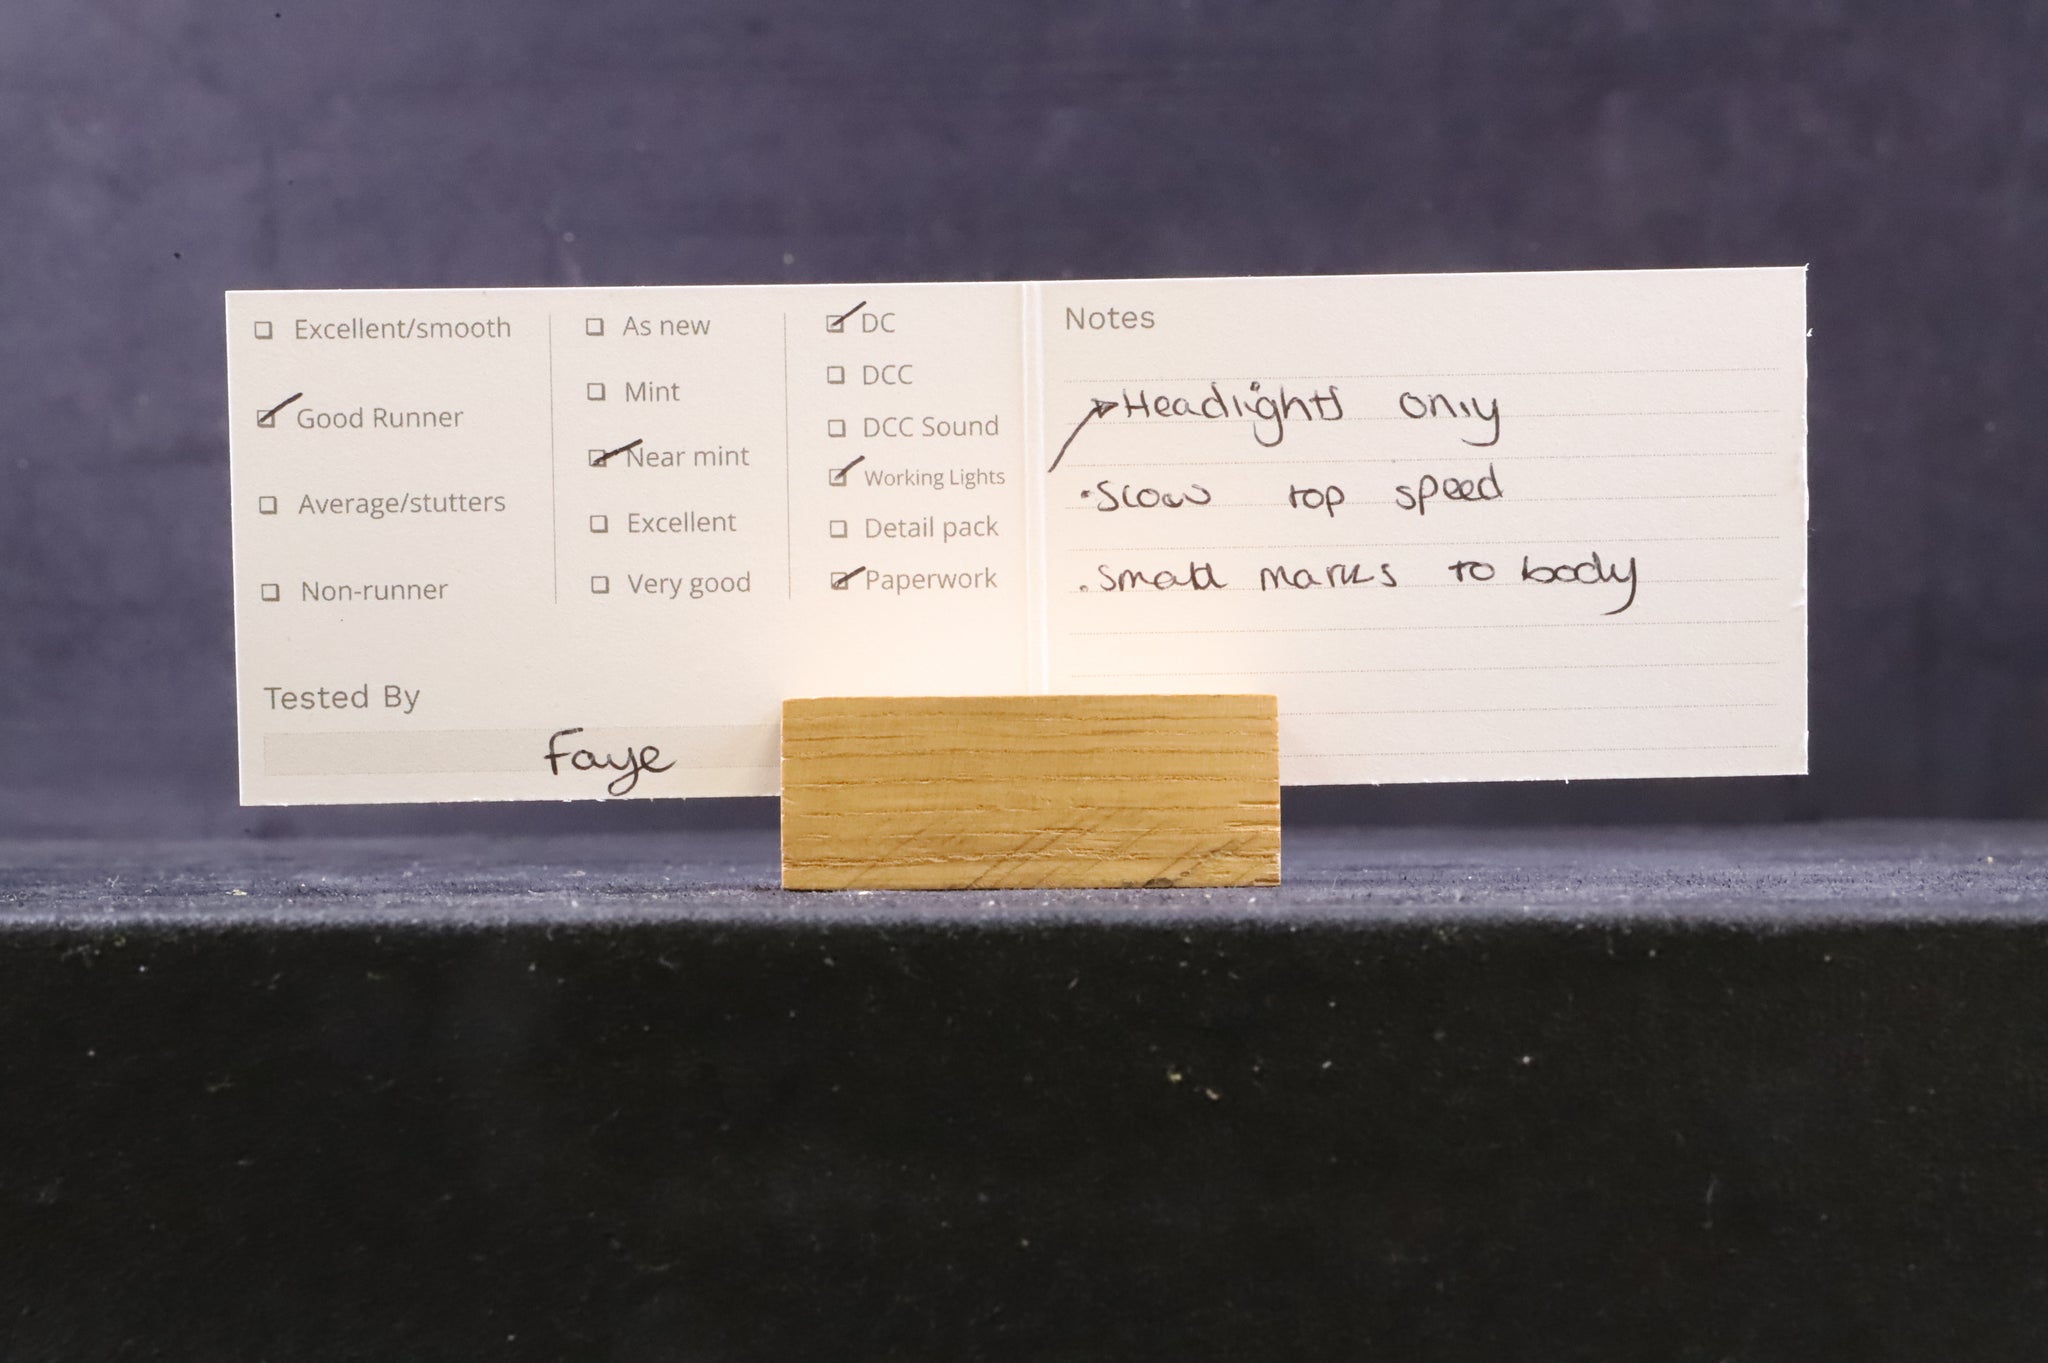 Excellent/smooth
Good Runner
Average/stutters
Non-runner
As new
Mint
Near mint
Excellent
Very good
DC
DCC
DCC Sound
Working Lights
Detail pack
Paperwork
Tested By
Faye
Notes
Headlights only
Slow top speed
Small marks to body